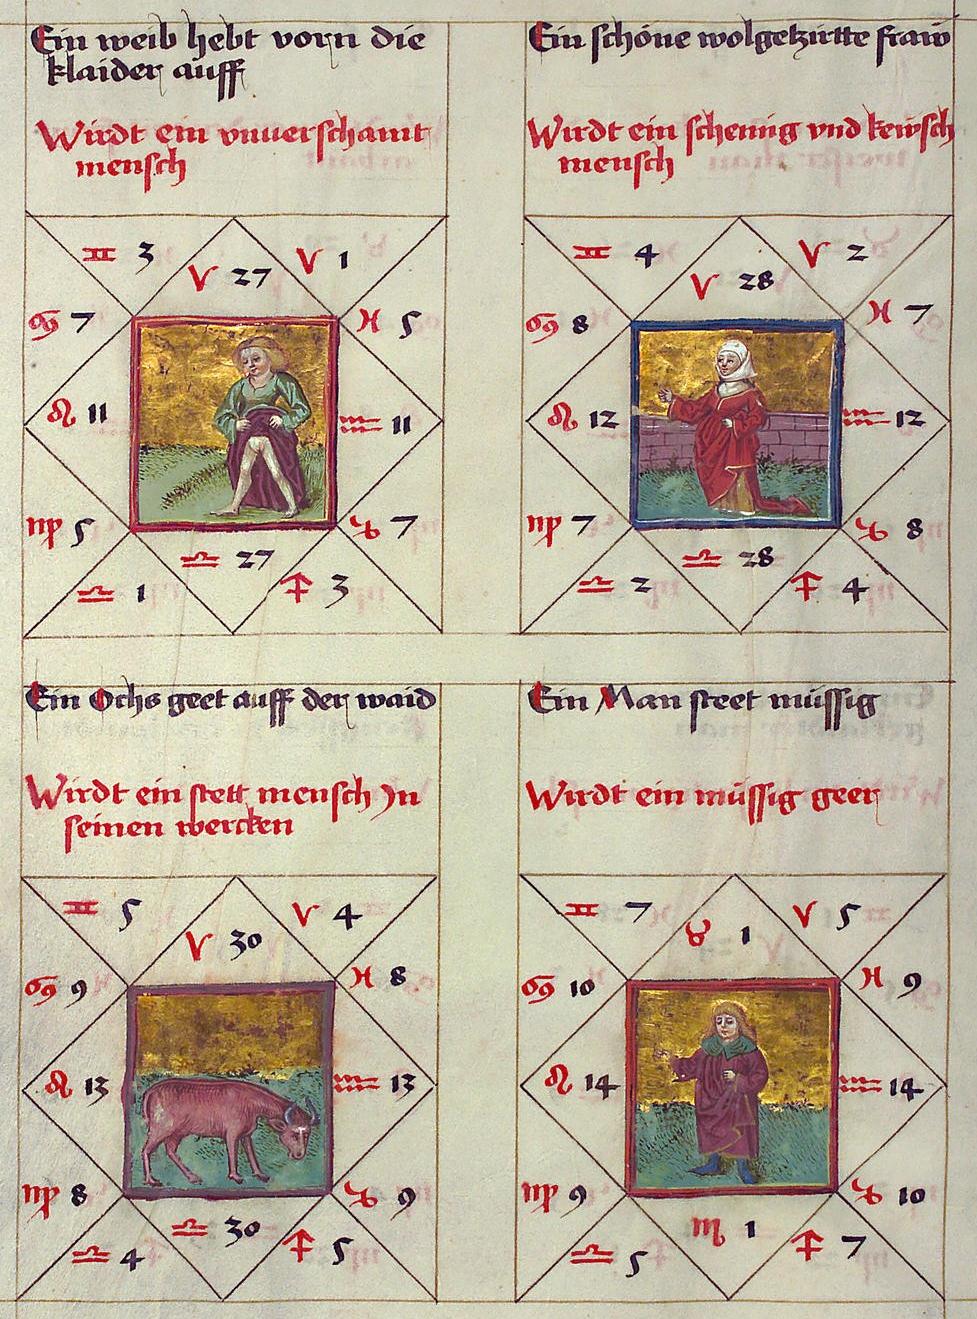 Ein weib hebt vorn die
klaider auff
Wirdt ein vnuerschamt
mensch
♊ 3
♈ 27
♈ 1
♋ 7
♓ 5
♌ 11
♒ 11
♍ 5
♑ 7
♎ 27
♎ 1
♐ 3
Ein schöne wolgetzirtte fraw
Wirdt ein schemig vnd kewsch
mensch
♊ 4
♈ 28
♈ 2
♋ 8
♓ 7
♌ 12
♒ 12
♍ 7
♑ 8
♎ 28
♎ 2
♐ 4
Ein Ochs geet auff der waid
Wirdt ein stett mensch Jn
seinen wercken
♊ 5
♈ 30
♈ 4
♋ 9
♓ 8
♌ 13
♒ 13
♍ 8
♑ 9
♎ 30
♎ 4
♐ 5
Ein Man steet müssig
Wirdt ein müssig geer
♊ 7
♉ 1
♈ 5
♋ 10
♓ 9
♌ 14
♒ 14
♍ 9
♑ 10
♏ 1
♎ 5
♐ 7